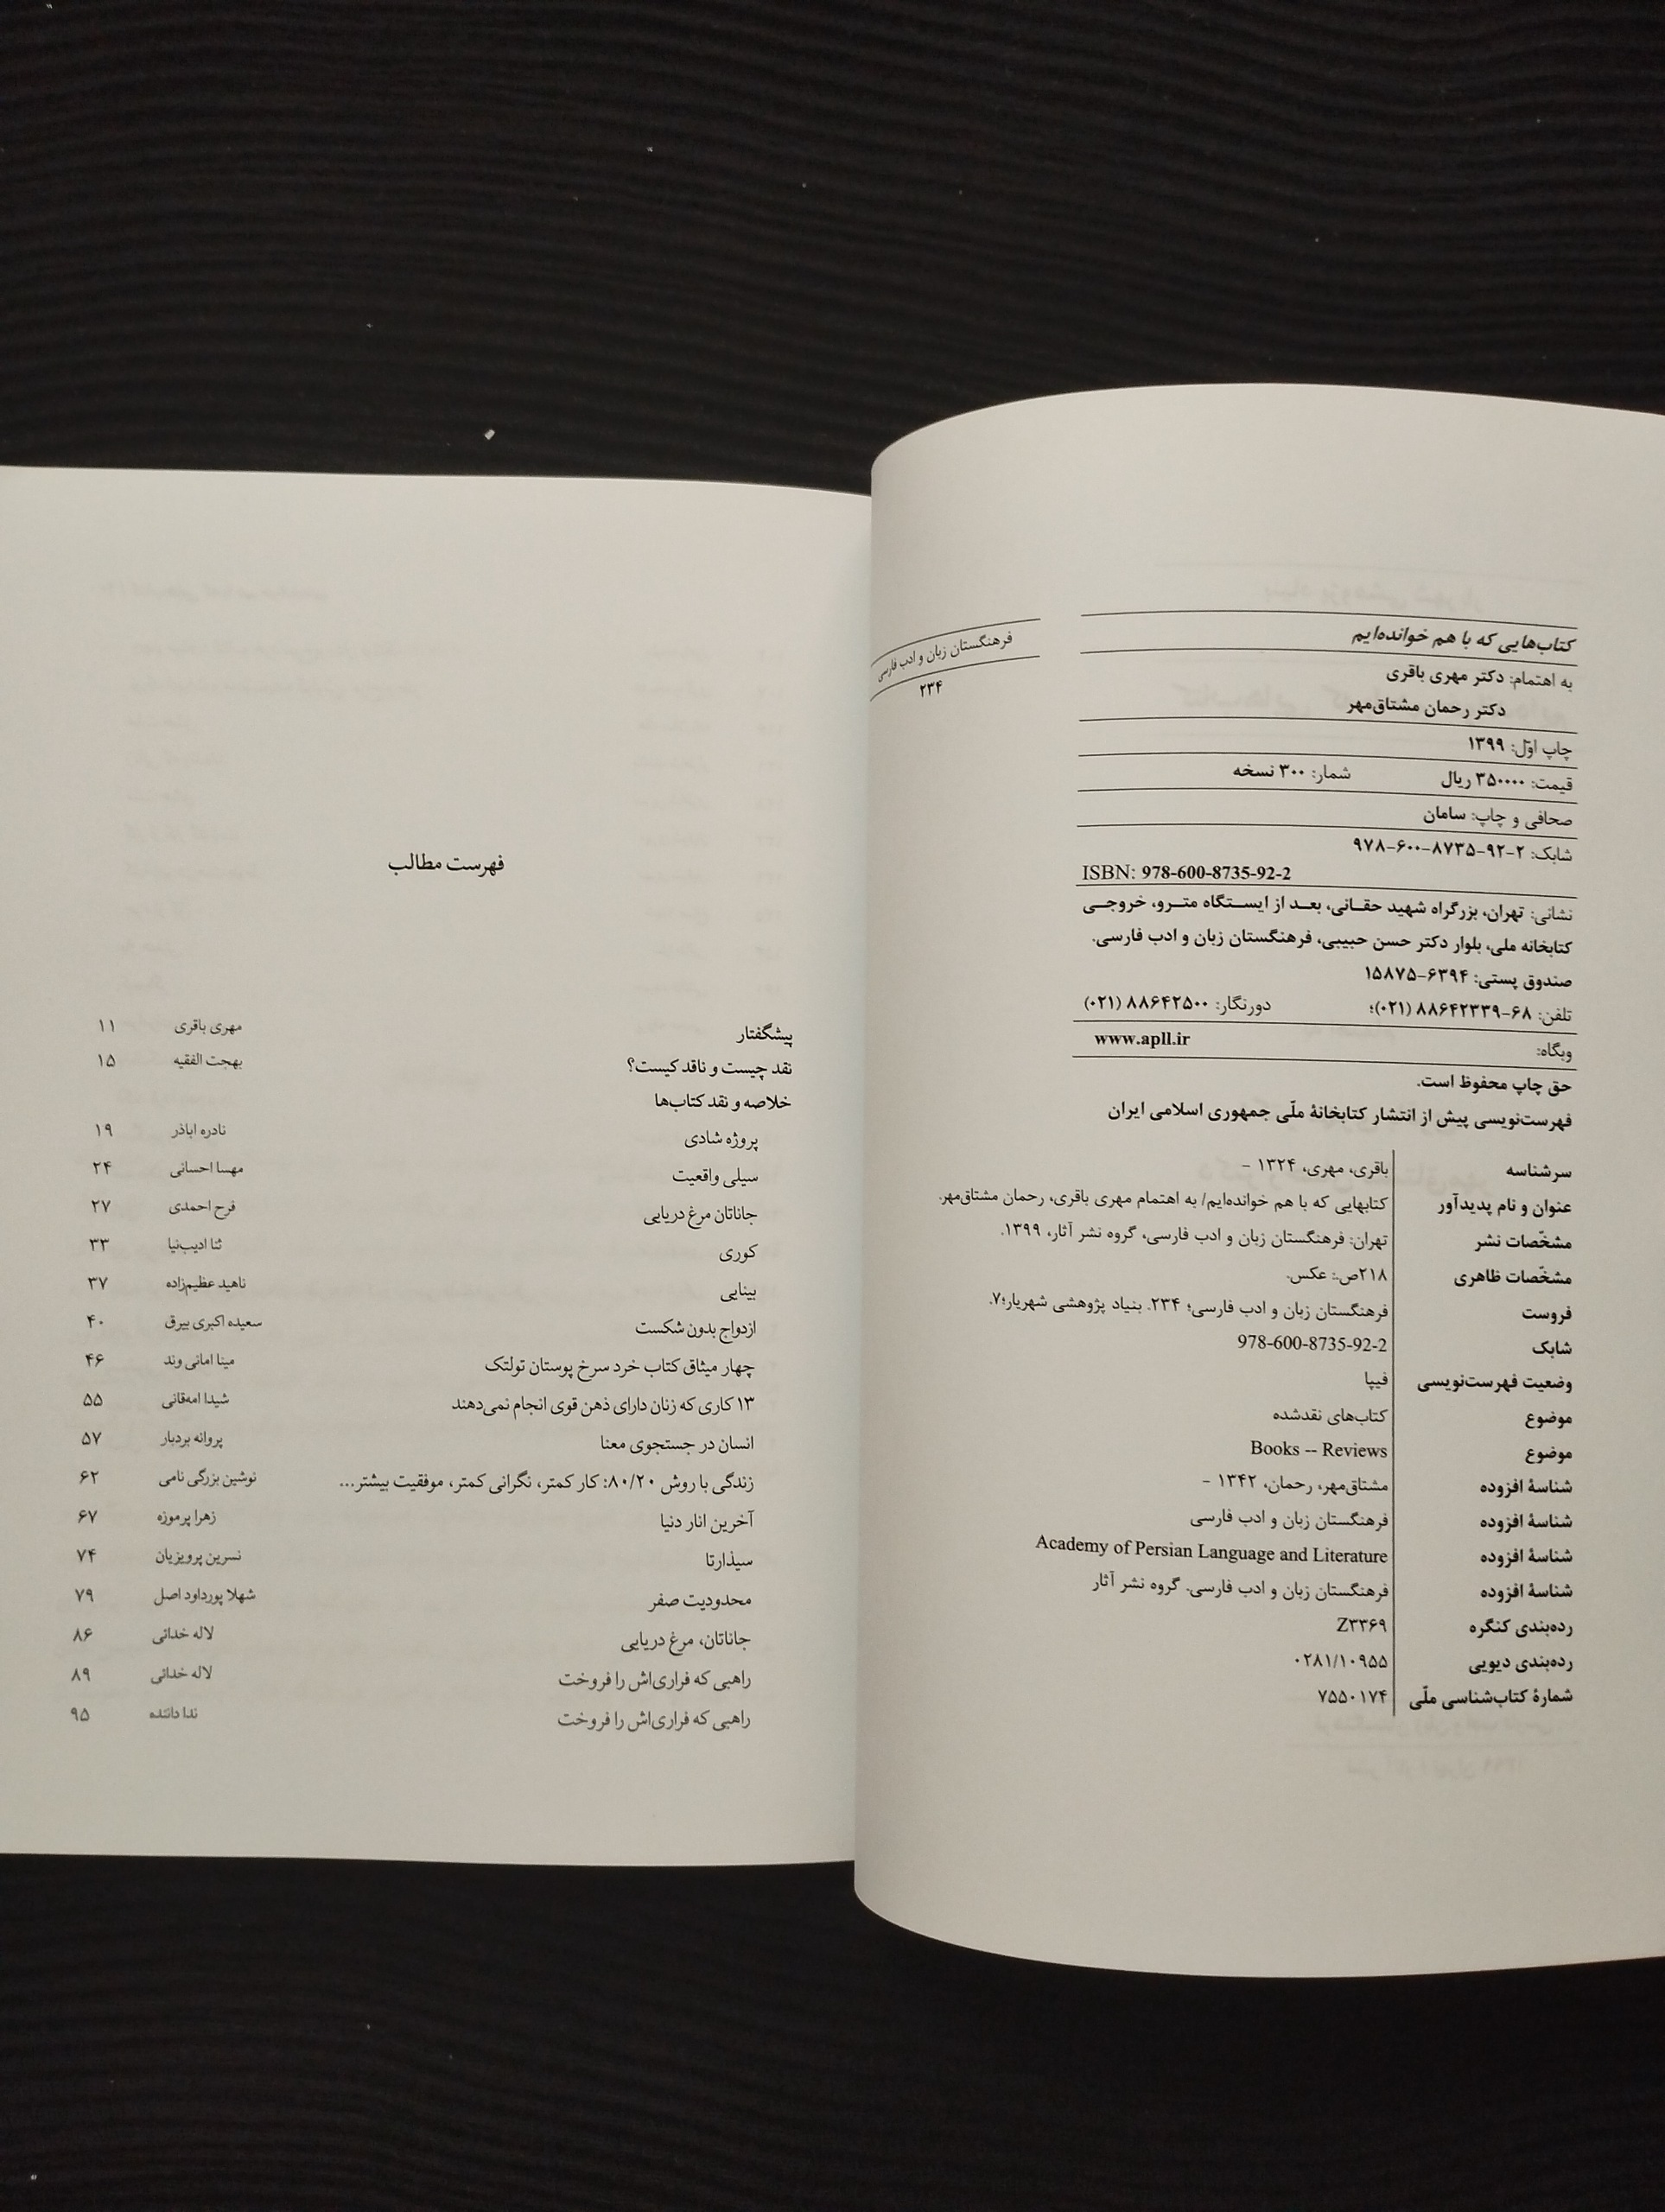 کتاب‌هایی که با هم خوانده‌ایم
به اهتمام: دکتر مهری باقری
دکتر رحمان مشتاق‌مهر
چاپ اوّل: ۱۳۹۹
قیمت: ۳۵۰۰۰۰ ریال شمار: ۳۰۰ نسخه
صحافی و چاپ: سامان
شابک: ۲-۹۲-۸۷۳۵-۶۰۰-۹۷۸
ISBN: 978-600-8735-92-2
نشانی: تهران، بزرگراه شهید حقـانی، بعـد از ایسـتگاه متـرو، خروجـی
کتابخانه ملی، بلوار دکتر حسن حبیبی، فرهنگستان زبان و ادب فارسی.
صندوق پستی: ۶۳۹۴-۱۵۸۷۵
تلفن: ۶۸-۸۸۶۴۲۳۳۹ (۰۲۱)؛ دورنگار: ۸۸۶۴۲۵۰۰ (۰۲۱)
وبگاه: www.apll.ir
حق چاپ محفوظ است.
فهرست‌نویسی پیش از انتشار کتابخانهٔ ملّی جمهوری اسلامی ایران
سرشناسه باقری، مهری، ۱۳۲۴ -
عنوان و نام پدیدآور کتابهایی که با هم خوانده‌ایم/ به اهتمام مهری باقری، رحمان مشتاق‌مهر.
مشخّصات نشر تهران: فرهنگستان زبان و ادب فارسی، گروه نشر آثار، ۱۳۹۹.
مشخّصات ظاهری ۲۱۸ص.: عکس.
فروست فرهنگستان زبان و ادب فارسی؛ ۲۳۴. بنیاد پژوهشی شهریار؛۷.
شابک 978-600-8735-92-2
وضعیت فهرست‌نویسی فیپا
موضوع کتاب‌های نقدشده
موضوع Books -- Reviews
شناسهٔ افزوده مشتاق‌مهر، رحمان، ۱۳۴۲ -
شناسهٔ افزوده فرهنگستان زبان و ادب فارسی
شناسهٔ افزوده Academy of Persian Language and Literature
شناسهٔ افزوده فرهنگستان زبان و ادب فارسی. گروه نشر آثار
رده‌بندی کنگره Z۳۳۶۹
رده‌بندی دیویی ۰۲۸۱/۱۰۹۵۵
شمارهٔ کتاب‌شناسی ملّی ۷۵۵۰۱۷۴
فرهنگستان زبان و ادب فارسی
۲۳۴
فهرست مطالب
پیشگفتار مهری باقری ۱۱
نقد چیست و ناقد کیست؟ بهجت الفقیه ۱۵
خلاصه و نقد کتاب‌ها
پروژه شادی نادره اباذر ۱۹
سیلی واقعیت مهسا احسانی ۲۴
جاناتان مرغ دریایی فرح احمدی ۲۷
کوری ثنا ادیب‌نیا ۳۳
بینایی ناهید عظیم‌زاده ۳۷
ازدواج بدون شکست سعیده اکبری بیرق ۴۰
چهار میثاق کتاب خرد سرخ پوستان تولتک مینا امانی وند ۴۶
۱۳ کاری که زنان دارای ذهن قوی انجام نمی‌دهند شیدا امه‌قانی ۵۵
انسان در جستجوی معنا پروانه بردبار ۵۷
زندگی با روش ۸۰/۲۰: کار کمتر، نگرانی کمتر، موفقیت بیشتر... نوشین بزرگی نامی ۶۲
آخرین انار دنیا زهرا پرموزه ۶۷
سیذارتا نسرین پرویزیان ۷۴
محدودیت صفر شهلا پورداود اصل ۷۹
جاناتان، مرغ دریایی لاله خدائی ۸۶
راهبی که فراری‌اش را فروخت لاله خدائی ۸۹
راهبی که فراری‌اش را فروخت ندا داننده ۹۵